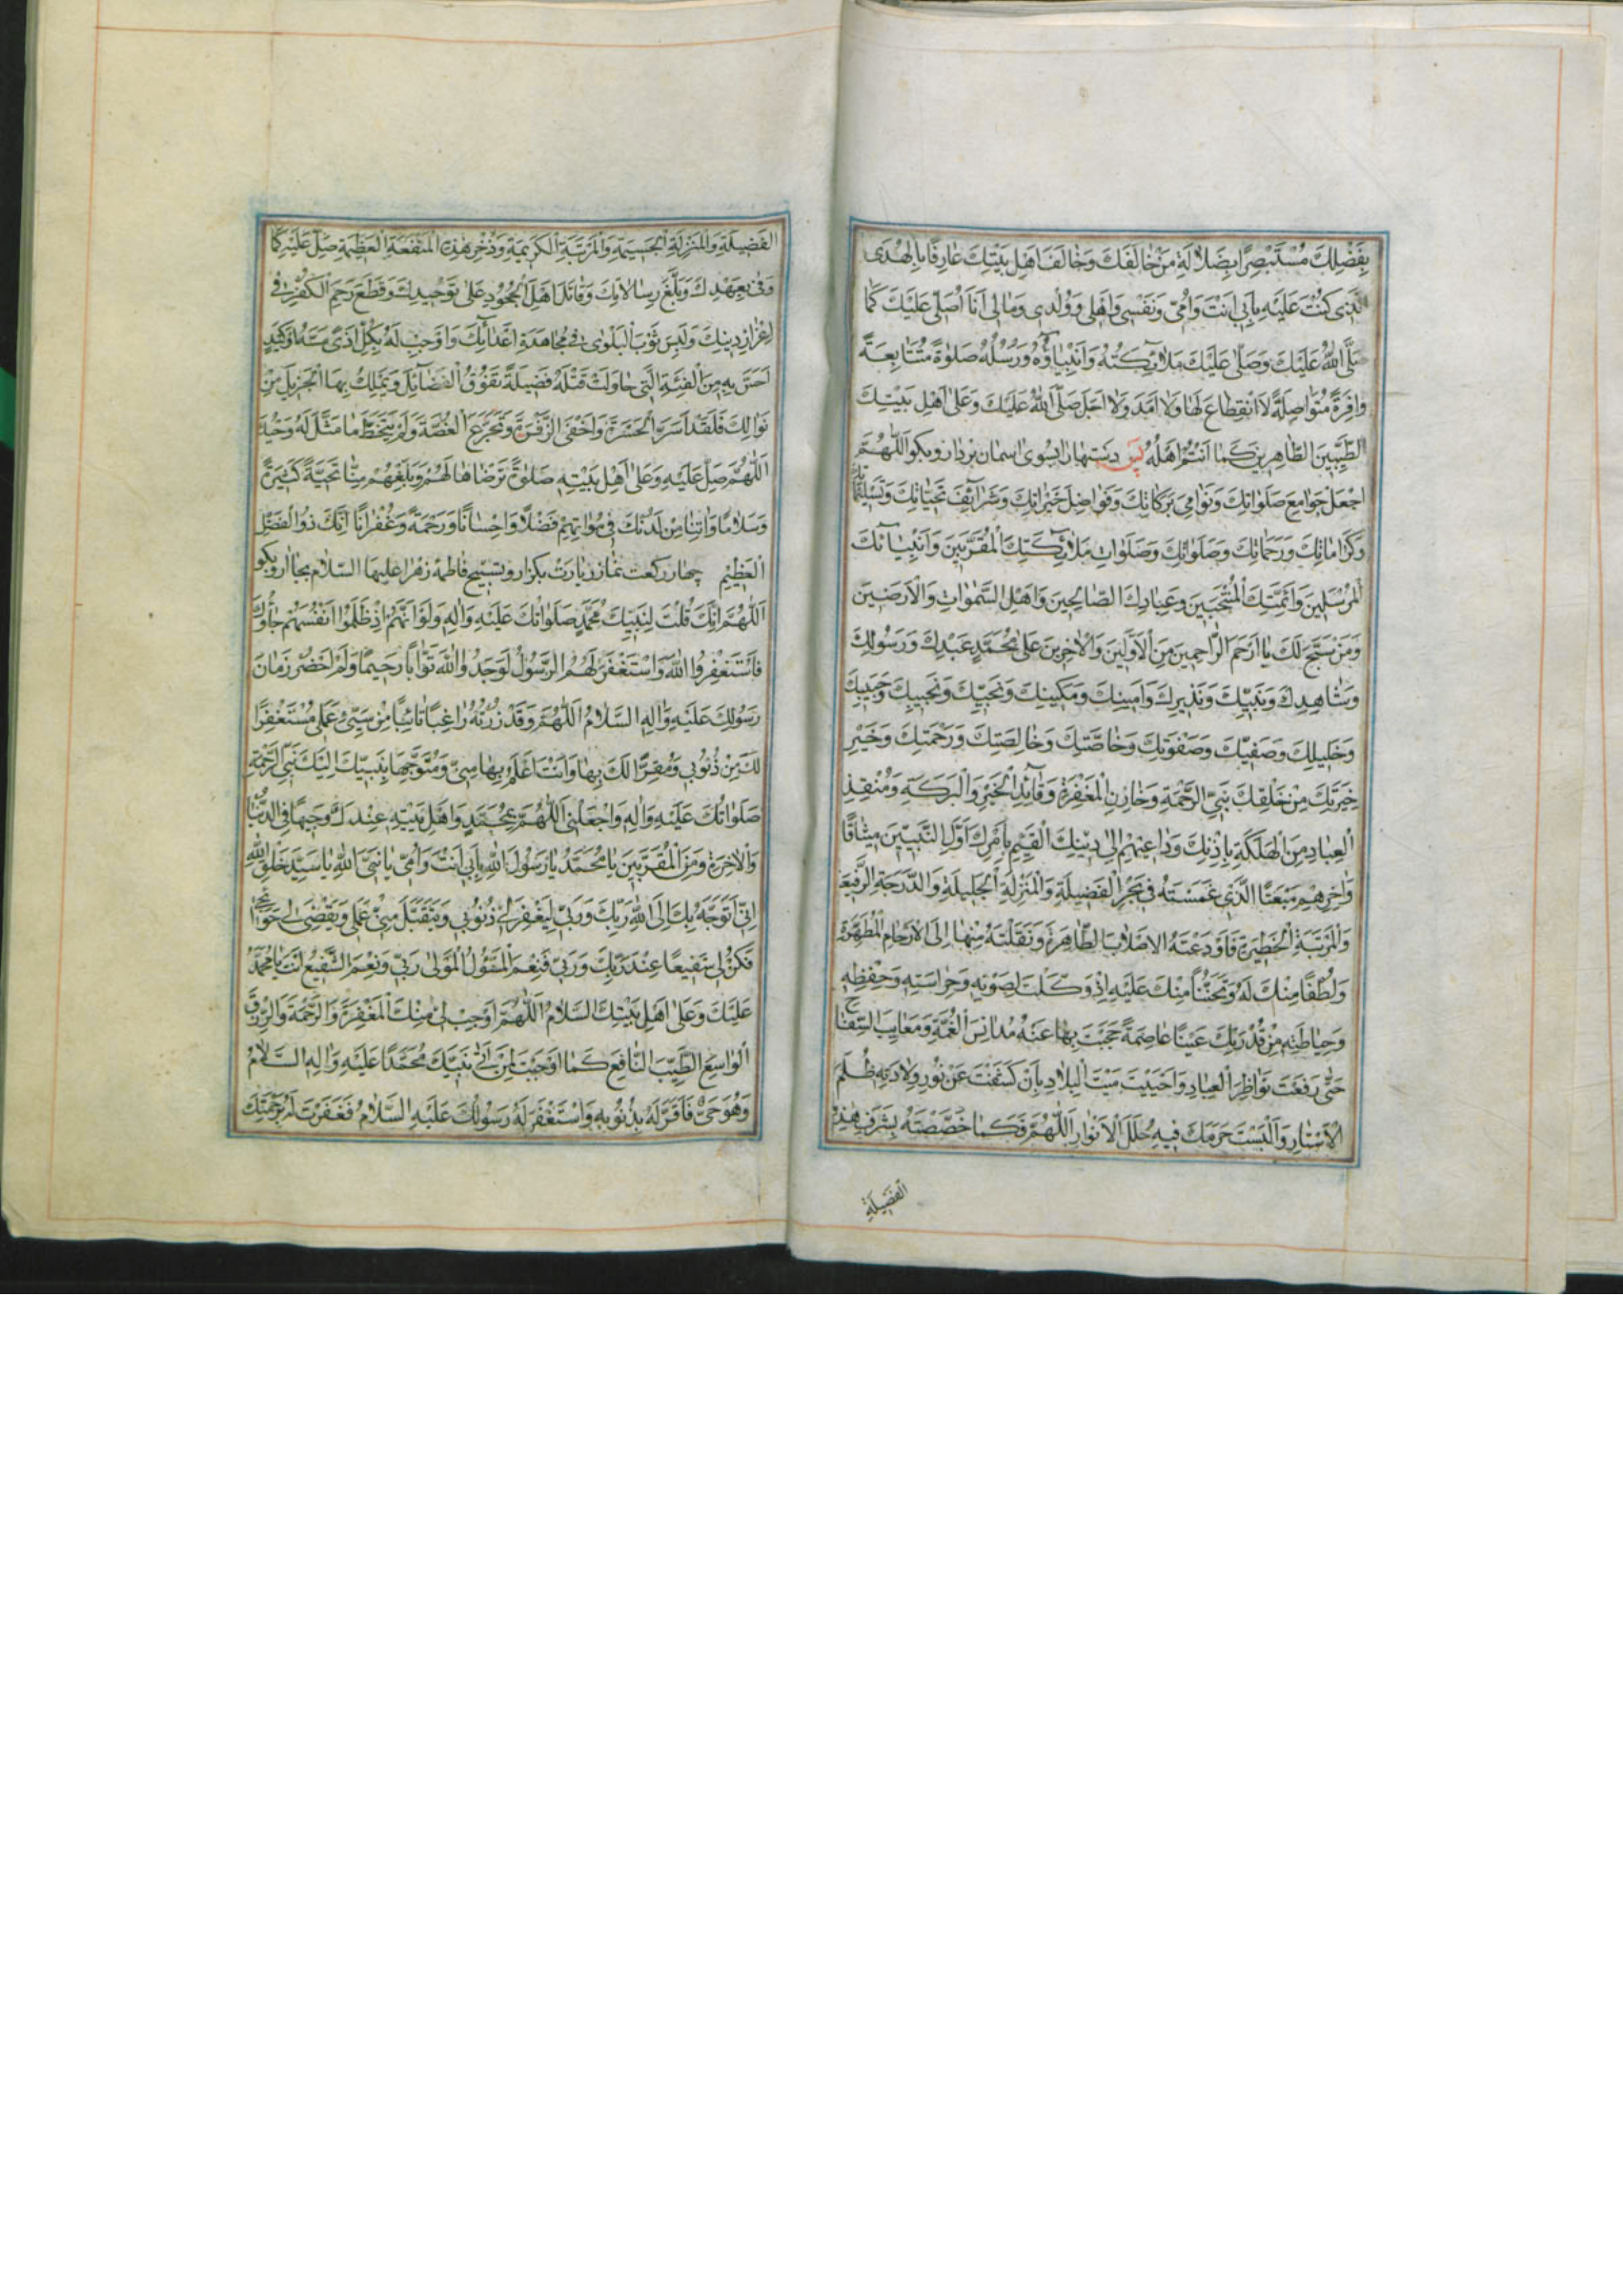 بِفَضْلِكَ مُسْتَبْصِرًا بِضَلَالَةِ مَنْ خَالَفَكَ وَخَالَفَ اَهْلَ بَيْتِكَ عَارِفًا بِالْهُدَى
الَّذِى كُنْتَ عَلَيْهِ بِاَبِى اَنْتَ وَاُمِّى وَنَفْسِى وَاَهْلِى وَوُلْدِى وَمَالِى اَنَا اُصَلِّى عَلَيْكَ كَمَا
صَلَّى اللهُ عَلَيْكَ وَصَلَّى عَلَيْكَ مَلَائِكَتُهُ وَاَنْبِيَاؤُهُ وَرُسُلُهُ صَلٰوةً مُتَتَابِعَةً
وَافِرَةً مُتَوَاصِلَةً لَا انْقِطَاعَ لَهَا وَلَا اَمَدَ وَلَا اَجَلَ صَلَّى اللهُ عَلَيْكَ وَعَلٰى اَهْلِ بَيْتِكَ
الطَّيِّبِينَ الطَّاهِرِينَ كَمَا اَنْتُمْ اَهْلُهُ پس دستهارا بسوى اسمان بردار و بكو اَللّٰهُمَّ
اجْعَلْ جَوَامِعَ صَلَوَاتِكَ وَنَوَامِىَ بَرَكَاتِكَ وَفَوَاضِلَ خَيْرَاتِكَ وَشَرَائِفَ تَحِيَّاتِكَ وَتَسْلِيمَاتِكَ
وَكَرَامَاتِكَ وَرَحَمَاتِكَ وَصَلَوَاتِكَ وَصَلَوَاتِ مَلَائِكَتِكَ الْمُقَرَّبِينَ وَاَنْبِيَائِكَ
الْمُرْسَلِينَ وَاَئِمَّتِكَ الْمُنْتَجَبِينَ وَعِبَادِكَ الصَّالِحِينَ وَاَهْلِ السَّمٰوَاتِ وَالْاَرَضِينَ
وَمَنْ سَبَّحَ لَكَ يَا اَرْحَمَ الرَّاحِمِينَ مِنَ الْاَوَّلِينَ وَالْاٰخِرِينَ عَلٰى مُحَمَّدٍ عَبْدِكَ وَرَسُولِكَ
وَشَاهِدِكَ وَنَبِيِّكَ وَنَذِيرِكَ وَاَمِينِكَ وَمَكِينِكَ وَنَجِيِّكَ وَنَجِيبِكَ وَحَبِيبِكَ
وَخَلِيلِكَ وَصَفِيِّكَ وَصَفْوَتِكَ وَخَاصَّتِكَ وَخَالِصَتِكَ وَرَحْمَتِكَ وَخَيْرِ
خِيَرَتِكَ مِنْ خَلْقِكَ نَبِىِّ الرَّحْمَةِ وَخَازِنِ الْمَغْفِرَةِ وَقَائِدِ الْخَيْرِ وَالْبَرَكَةِ وَمُنْقِذِ
الْعِبَادِ مِنَ الْهَلَكَةِ بِاِذْنِكَ وَدَاعِيهِمْ اِلٰى دِينِكَ الْقَيِّمِ بِاَمْرِكَ اَوَّلِ النَّبِيِّينَ مِيثَاقًا
وَاٰخِرِهِمْ مَبْعَثًا الَّذِى غَمَسْتَهُ فِى بَحْرِ الْفَضِيلَةِ وَالْمَنْزِلَةِ الْجَلِيلَةِ وَالدَّرَجَةِ الرَّفِيعَةِ
وَالْمَرْتَبَةِ الْخَطِيرَةِ فَاَوْدَعْتَهُ الْاَصْلَابَ الطَّاهِرَةَ وَنَقَلْتَهُ مِنْهَا اِلَى الْاَرْحَامِ الْمُطَهَّرَةِ
وَلُطْفًا مِنْكَ لَهُ وَتَحَنُّنًا مِنْكَ عَلَيْهِ اِذْ وَكَّلْتَ لِصَوْنِهِ وَحِرَاسَتِهِ وَحِفْظِهِ
وَحِيَاطَتِهِ مِنْ قُدْرَتِكَ عَيْنًا عَاصِمَةً حَجَبْتَ بِهَا عَنْهُ مَدَانِسَ الْعُمَّةِ وَمَعَايِبَ السِّفَاحِ
حَتّٰى رَفَعْتَ نَوَاظِرَ الْعِبَادِ وَاَحْيَيْتَ مَيْتَ الْبِلَادِ بِاَنْ كَشَفْتَ عَنْ نُورِ وِلَادَتِهِ ظُلَمَ
الْاَسْتَارِ وَاَلْبَسْتَ حَرَمَكَ فِيهِ حُلَلَ الْاَنْوَارِ اَللّٰهُمَّ فَكَمَا خَصَصْتَهُ بِشَرَفِ هٰذِهِ
الفَضِيلَةِ
الفَضِيلَةِ وَالْمَنْزِلَةِ الْجَسِيمَةِ وَالْمَرْتَبَةِ الْكَرِيمَةِ وَذُخْرِ هٰذِهِ الْمَنْقَبَةِ الْعَظِيمَةِ صَلِّ عَلَيْهِ كَمَا
وَفٰى بِعَهْدِكَ وَبَلَّغَ رِسَالَاتِكَ وَقَاتَلَ اَهْلَ الْجُحُودِ عَلٰى تَوْحِيدِكَ وَقَطَعَ رَحِمَ الْكُفْرِ فِى
اِعْزَازِ دِينِكَ وَلَبِسَ ثَوْبَ الْبَلْوٰى فِى مُجَاهَدَةِ اَعْدَائِكَ وَاَوْجِبْ لَهُ بِكُلِّ اَذًى مَسَّهُ اَوْ كَيْدٍ
اَحَسَّ بِهِ مِنَ الْفِئَةِ الَّتِى حَاوَلَتْ قَتْلَهُ فَضِيلَةً تَفُوقُ الْفَضَائِلَ وَيَمْلِكُ بِهَا الْجَزِيلَ مِنْ
نَوَالِكَ فَلَقَدْ اَسَرَّ الْحَسْرَةَ وَاَخْفَى الزَّفْرَةَ وَتَجَرَّعَ الْغُصَّةَ وَلَمْ يَتَخَطَّ مَا مَثَّلَ لَهُ وَحْيُكَ
اَللّٰهُمَّ صَلِّ عَلَيْهِ وَعَلٰى اَهْلِ بَيْتِهِ صَلٰوةً تَرْضَاهَا لَهُمْ وَبَلِّغْهُمْ مِنَّا تَحِيَّةً كَثِيرَةً
وَسَلَامًا وَاٰتِنَا مِنْ لَدُنْكَ فِى مُوَالَاتِهِمْ فَضْلًا وَاِحْسَانًا وَرَحْمَةً وَغُفْرَانًا اِنَّكَ ذُو الْفَضْلِ
الْعَظِيمِ چهار ركعت نماز زيارت بكزار و تسبيح فاطمه زهرا عليها السلام بجا ار و بكو
اَللّٰهُمَّ اِنَّكَ قُلْتَ لِنَبِيِّكَ مُحَمَّدٍ صَلَوَاتُكَ عَلَيْهِ وَاٰلِهِ وَلَوْ اَنَّهُمْ اِذْ ظَلَمُوا اَنْفُسَهُمْ جَاؤُكَ
فَاسْتَغْفَرُوا اللهَ وَاسْتَغْفَرَ لَهُمُ الرَّسُولُ لَوَجَدُوا اللهَ تَوَّابًا رَحِيمًا وَلَمْ اَحْضُرْ زَمَانَ
رَسُولِكَ عَلَيْهِ وَاٰلِهِ السَّلَامُ اَللّٰهُمَّ وَقَدْ زُرْتُهُ رَاغِبًا تَائِبًا مِنْ سَيِّئِ عَمَلِى مُسْتَغْفِرًا
لَكَ مِنْ ذُنُوبِى وَمُقِرًّا لَكَ بِهَا وَاَنْتَ اَعْلَمُ بِهَا مِنِّى وَمُتَوَجِّهًا بِنَبِيِّكَ اِلَيْكَ نَبِىِّ الرَّحْمَةِ
صَلَوَاتُكَ عَلَيْهِ وَاٰلِهِ وَاجْعَلْنِى اَللّٰهُمَّ بِمُحَمَّدٍ وَاَهْلِ بَيْتِهِ عِنْدَكَ وَجِيهًا فِى الدُّنْيَا
وَالْاٰخِرَةِ وَمِنَ الْمُقَرَّبِينَ يَا مُحَمَّدُ يَا رَسُولَ اللهِ بِاَبِى اَنْتَ وَاُمِّى يَا نَبِىَّ اللهِ يَا سَيِّدَ خَلْقِ اللهِ
اِنِّى اَتَوَجَّهُ بِكَ اِلَى اللهِ رَبِّكَ وَرَبِّى لِيَغْفِرَ لِى ذُنُوبِى وَيَتَقَبَّلَ مِنِّى عَمَلِى وَيَقْضِىَ لِى حَوَائِجِى
فَكُنْ لِى شَفِيعًا عِنْدَ رَبِّكَ وَرَبِّى فَنِعْمَ الْمَسْؤُلُ الْمَوْلٰى رَبِّى وَنِعْمَ الشَّفِيعُ اَنْتَ يَا مُحَمَّدُ
عَلَيْكَ وَعَلٰى اَهْلِ بَيْتِكَ السَّلَامُ اَللّٰهُمَّ اَوْجِبْ لِى مِنْكَ الْمَغْفِرَةَ وَالرَّحْمَةَ وَالرِّزْقَ
الْوَاسِعَ الطَّيِّبَ النَّافِعَ كَمَا اَوْجَبْتَ لِمَنْ اَتٰى نَبِيَّكَ مُحَمَّدًا عَلَيْهِ وَاٰلِهِ السَّلَامُ
وَهُوَ حَىٌّ فَاَقَرَّ لَهُ بِذُنُوبِهِ وَاسْتَغْفَرَ لَهُ رَسُولُكَ عَلَيْهِ السَّلَامُ فَغَفَرْتَ لَهُ بِرَحْمَتِكَ